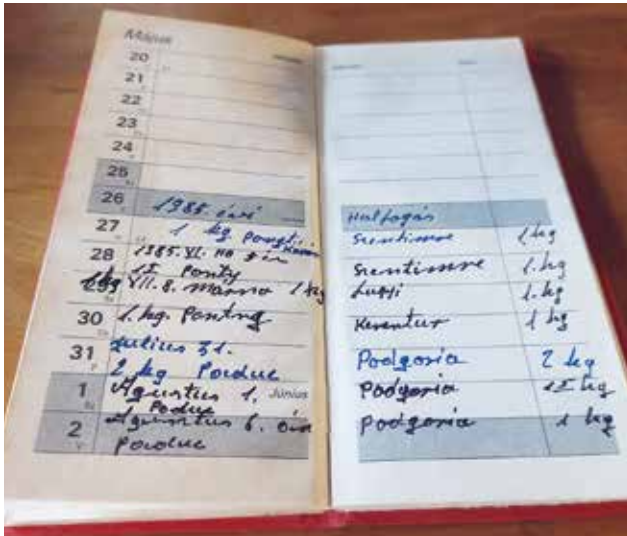 Május
20
21
22
23
24
25
26 1985. évi
27 1 kg ponty
28 1985. VI. hó
ponty
VII. 8. Marna 1 kg
30 1. kg. Ponty
31 Julius 31.
2 kg Poduc
1 Agustus 1. Június
Poduc
2 Agusztus 6. án
Poduc
Halfogás
Szentimre 1 kg
Szentimre 1. kg
Lugji 1. kg
Keresztur 1 kg
Podgoria 2 kg
Podgoria kg
Podgoria 1 kg